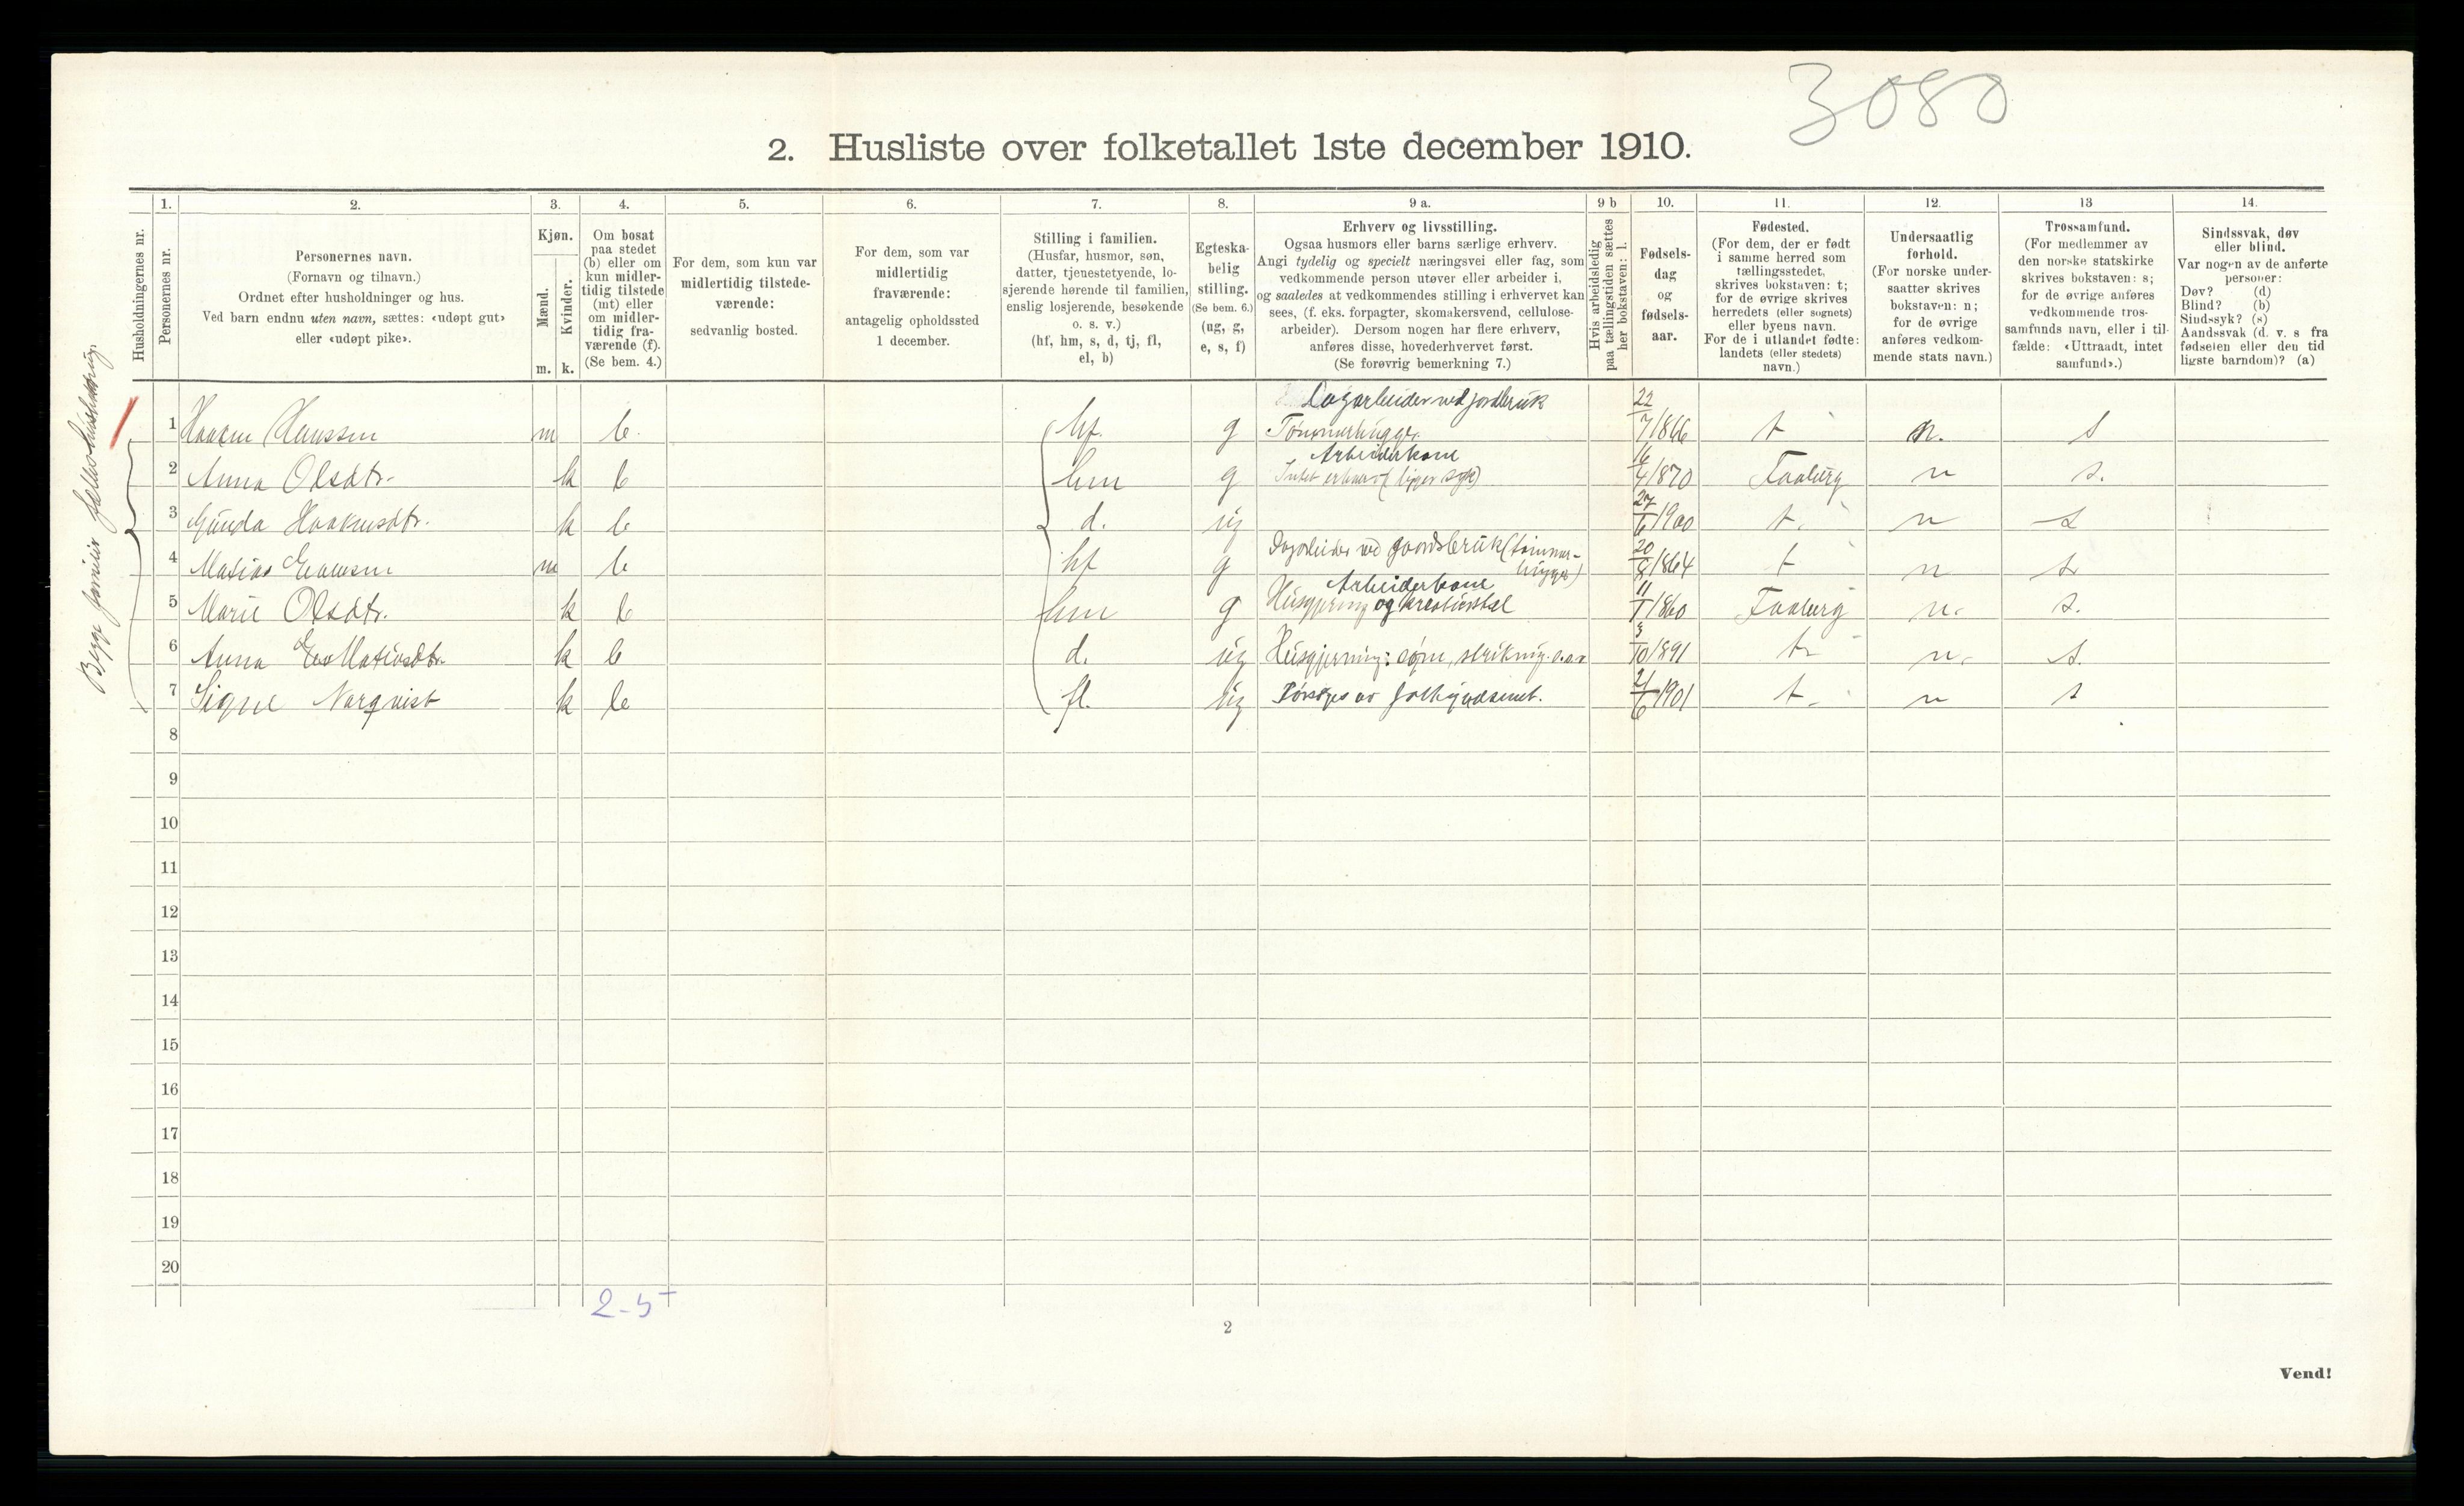 3080
2. Husliste over folketallet 1ste december 1910.
Husholdningernes nr.
1.
Personernes nr.
2.
Personernes navn.
(Fornavn og tilnavn.)
Ordnet efter husholdninger og hus.
Ved barn endnu uten navn, sættes: «udøpt gut»
eller «udøpt pike».
3.
Kjøn.
Mænd.
Kvinder.
m. k.
4.
Om bosat
paa stedet
(b) eller om
kun midler-
tidig tilstede
(mt) eller
om midler-
tidig fra-
værende (f).
(Se bem. 4.)
5.
For dem, som kun var
midlertidig tilstede-
værende:
sedvanlig bosted.
6.
For dem, som var
midlertidig
fraværende:
antagelig opholdssted
1 december.
7.
Stilling i familien.
(Husfar, husmor, søn,
datter, tjenestetyende, lo-
sjerende hørende til familien,
enslig losjerende, besøkende
o. s. v.)
(hf, hm, s, d, tj, fl,
el, b)
8.
Egteska-
belig
stilling.
(Se bem. 6.)
(ug, g,
e, s, f)
9 a.
Erhverv og livsstilling.
Ogsaa husmors eller barns særlige erhverv.
Angi tydelig og specielt næringsvei eller fag, som
vedkommende person utøver eller arbeider i,
og saaledes at vedkommendes stilling i erhvervet kan
sees, (f. eks. forpagter, skomakersvend, cellulose-
arbeider). Dersom nogen har flere erhverv,
anføres disse, hovederhvervet først.
(Se forøvrig bemerkning 7.)
9 b
Hvis arbeidsledig
paa tællingstiden sættes
her bokstaven: l.
10.
Fødsels-
dag
og
fødsels-
aar.
11.
Fødested.
(For dem, der er født
i samme herred som
tællingsstedet,
skrives bokstaven: t;
for de øvrige skrives
herredets (eller sognets)
eller byens navn.
For de i utlandet fødte:
landets (eller stedets)
navn.)
12.
Undersaatlig
forhold.
(For norske under-
saatter skrives
bokstaven: n;
for de øvrige
anføres vedkom-
mende stats navn.)
13
Trossamfund.
(For medlemmer av
den norske statskirke
skrives bokstaven: s;
for de øvrige anføres
vedkommende tros-
samfunds navn, eller i til-
fælde: «Uttraadt, intet
samfund».)
14.
Sindssvak, døv
eller blind.
Var nogen av de anførte
personer:
Døv? (d)
Blind? (b)
Sindssyk? (s)
Aandssvak (d. v. s fra
fødselen eller den tid-
ligste barndom)? (a)
Begge familier fælles husholdning.
Dagarbeider ved jordbruk
1 Haakon Hanssen m b. hf. g Tømmerhugger. 22/7 1866 t n. s
Arbeiderkone
2 Anna Olsdtr. k b hm g Intet erhverv (ligger syk) 16/4 1870 Faaberg n s.
3 Gunda Haakensdtr. k b d. ug 27/6 1900 t. n s
4 Matias Evensen m b hf g Dagarbeider ved gaardsbruk (tømmer-
hugger) 20/8 1864 t n s.
Arbeiderkone
5 Marie Olsdtr. k b hm g Husgjerning og kreaturstel 11/1 1860 Faaberg n. s.
6 Anna Matiasdtr. k b d. ug Husgjerning: søm, strikning o.a.v 3/10 1891 t. n. s.
7 Signe Norqvist k b fl. ug Forsørges av fattigvæsenet. 21/6 1901 t. n s
8
9
10
11
12
13
14
15
16
17
18
19
20
2-5
2
Vend!